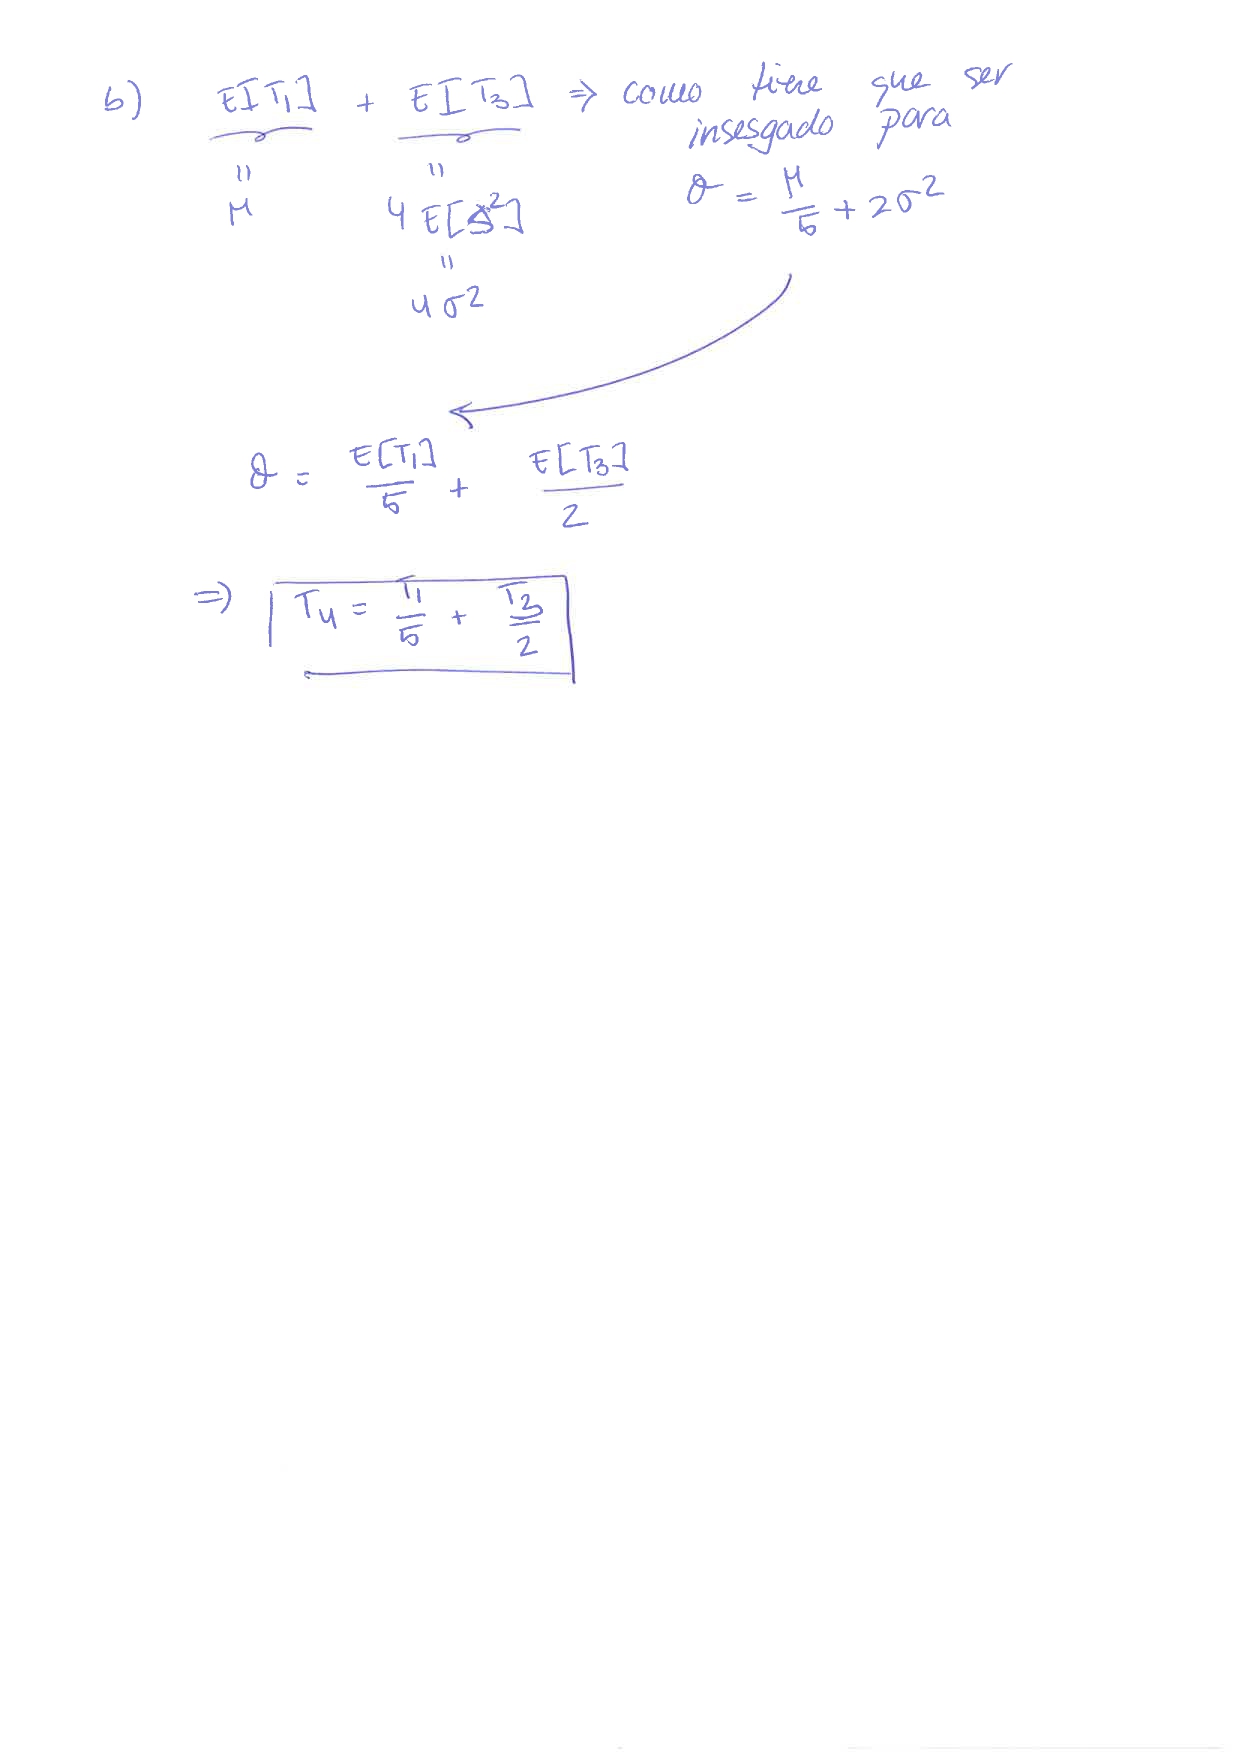 b) E[T₁] + E[T₃] ⇒ como tiene que ser
insesgado para
" " θ = μ/5 + 2σ²
μ 4 E[S²]
"
4σ²
θ = E[T₁]/5 + E[T₃]/2
⇒ T₄ = T₁/5 + T₃/2